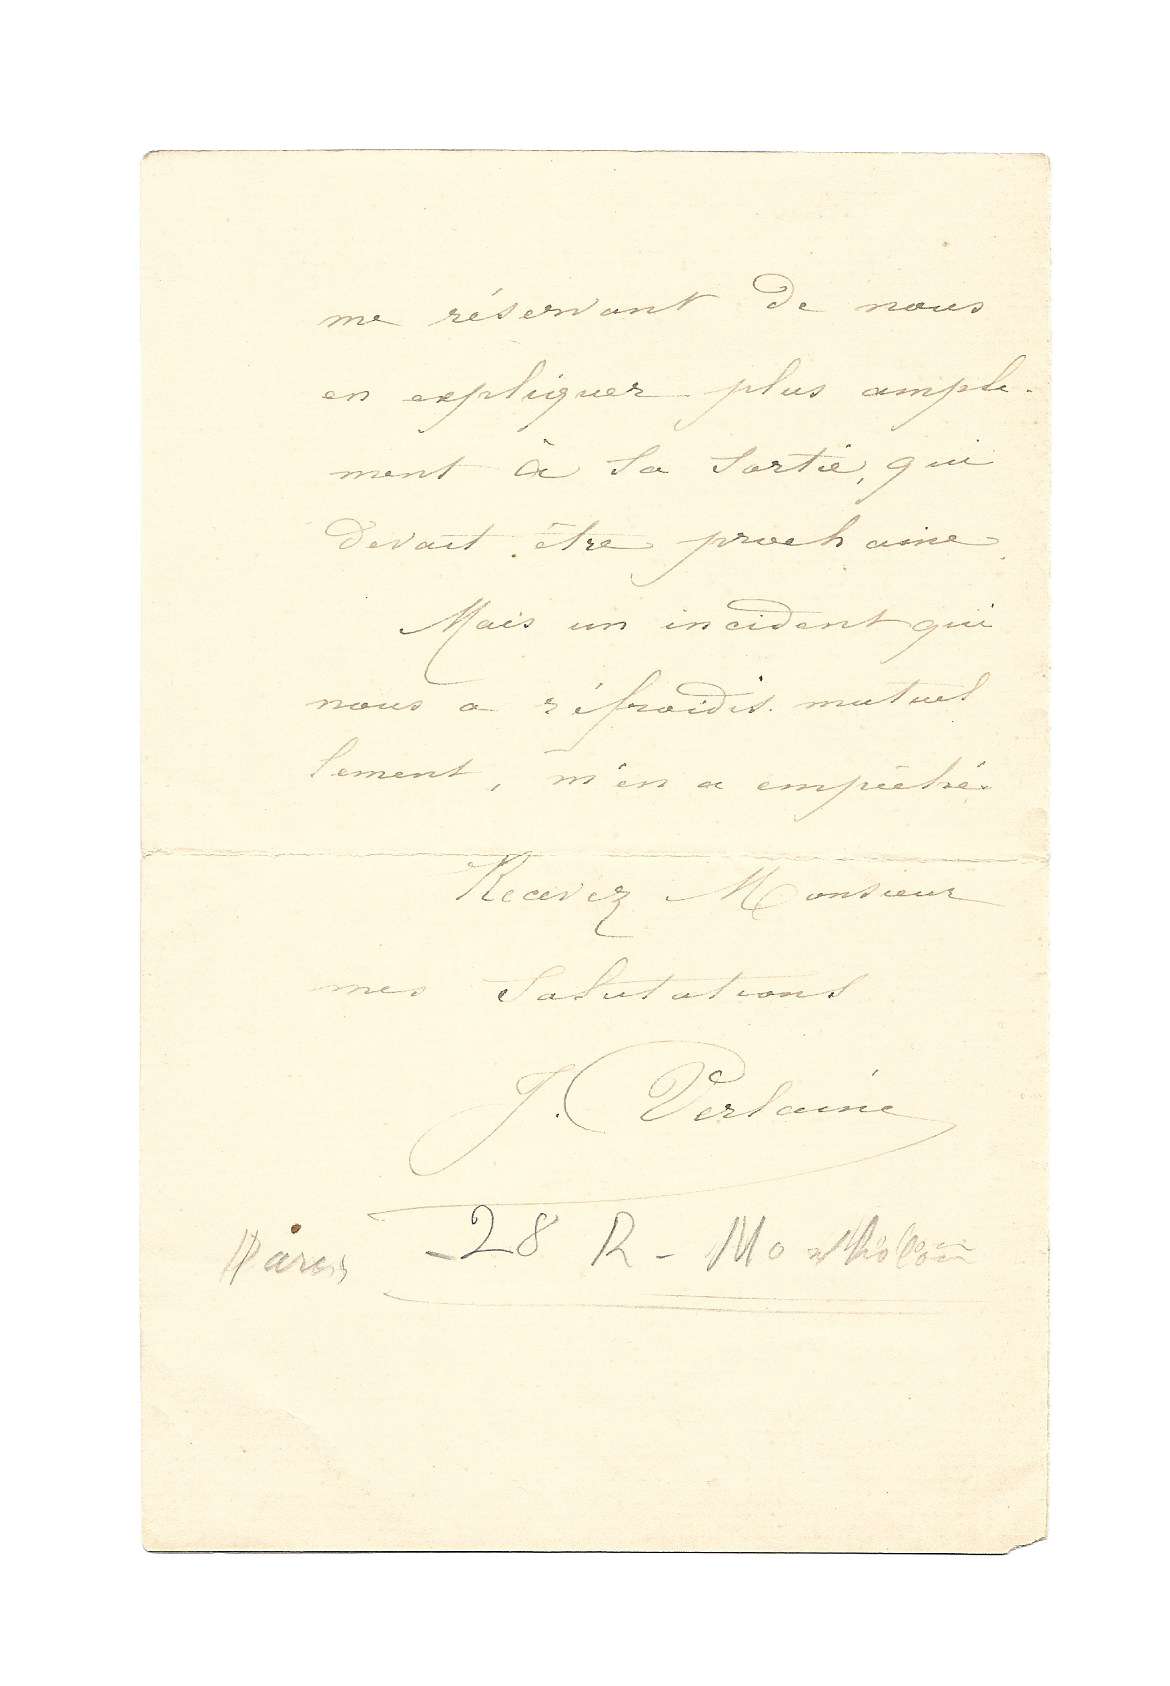 me réservant de nous
en expliquer plus ample-
ment à sa sortie, qui
devait être prochaine.
Mais un incident qui
nous a réfroidis mutuel
lement, m'en a empêché.
Recevez Monsieur
mes salutations
J. Verlaine
28 R - Montholon